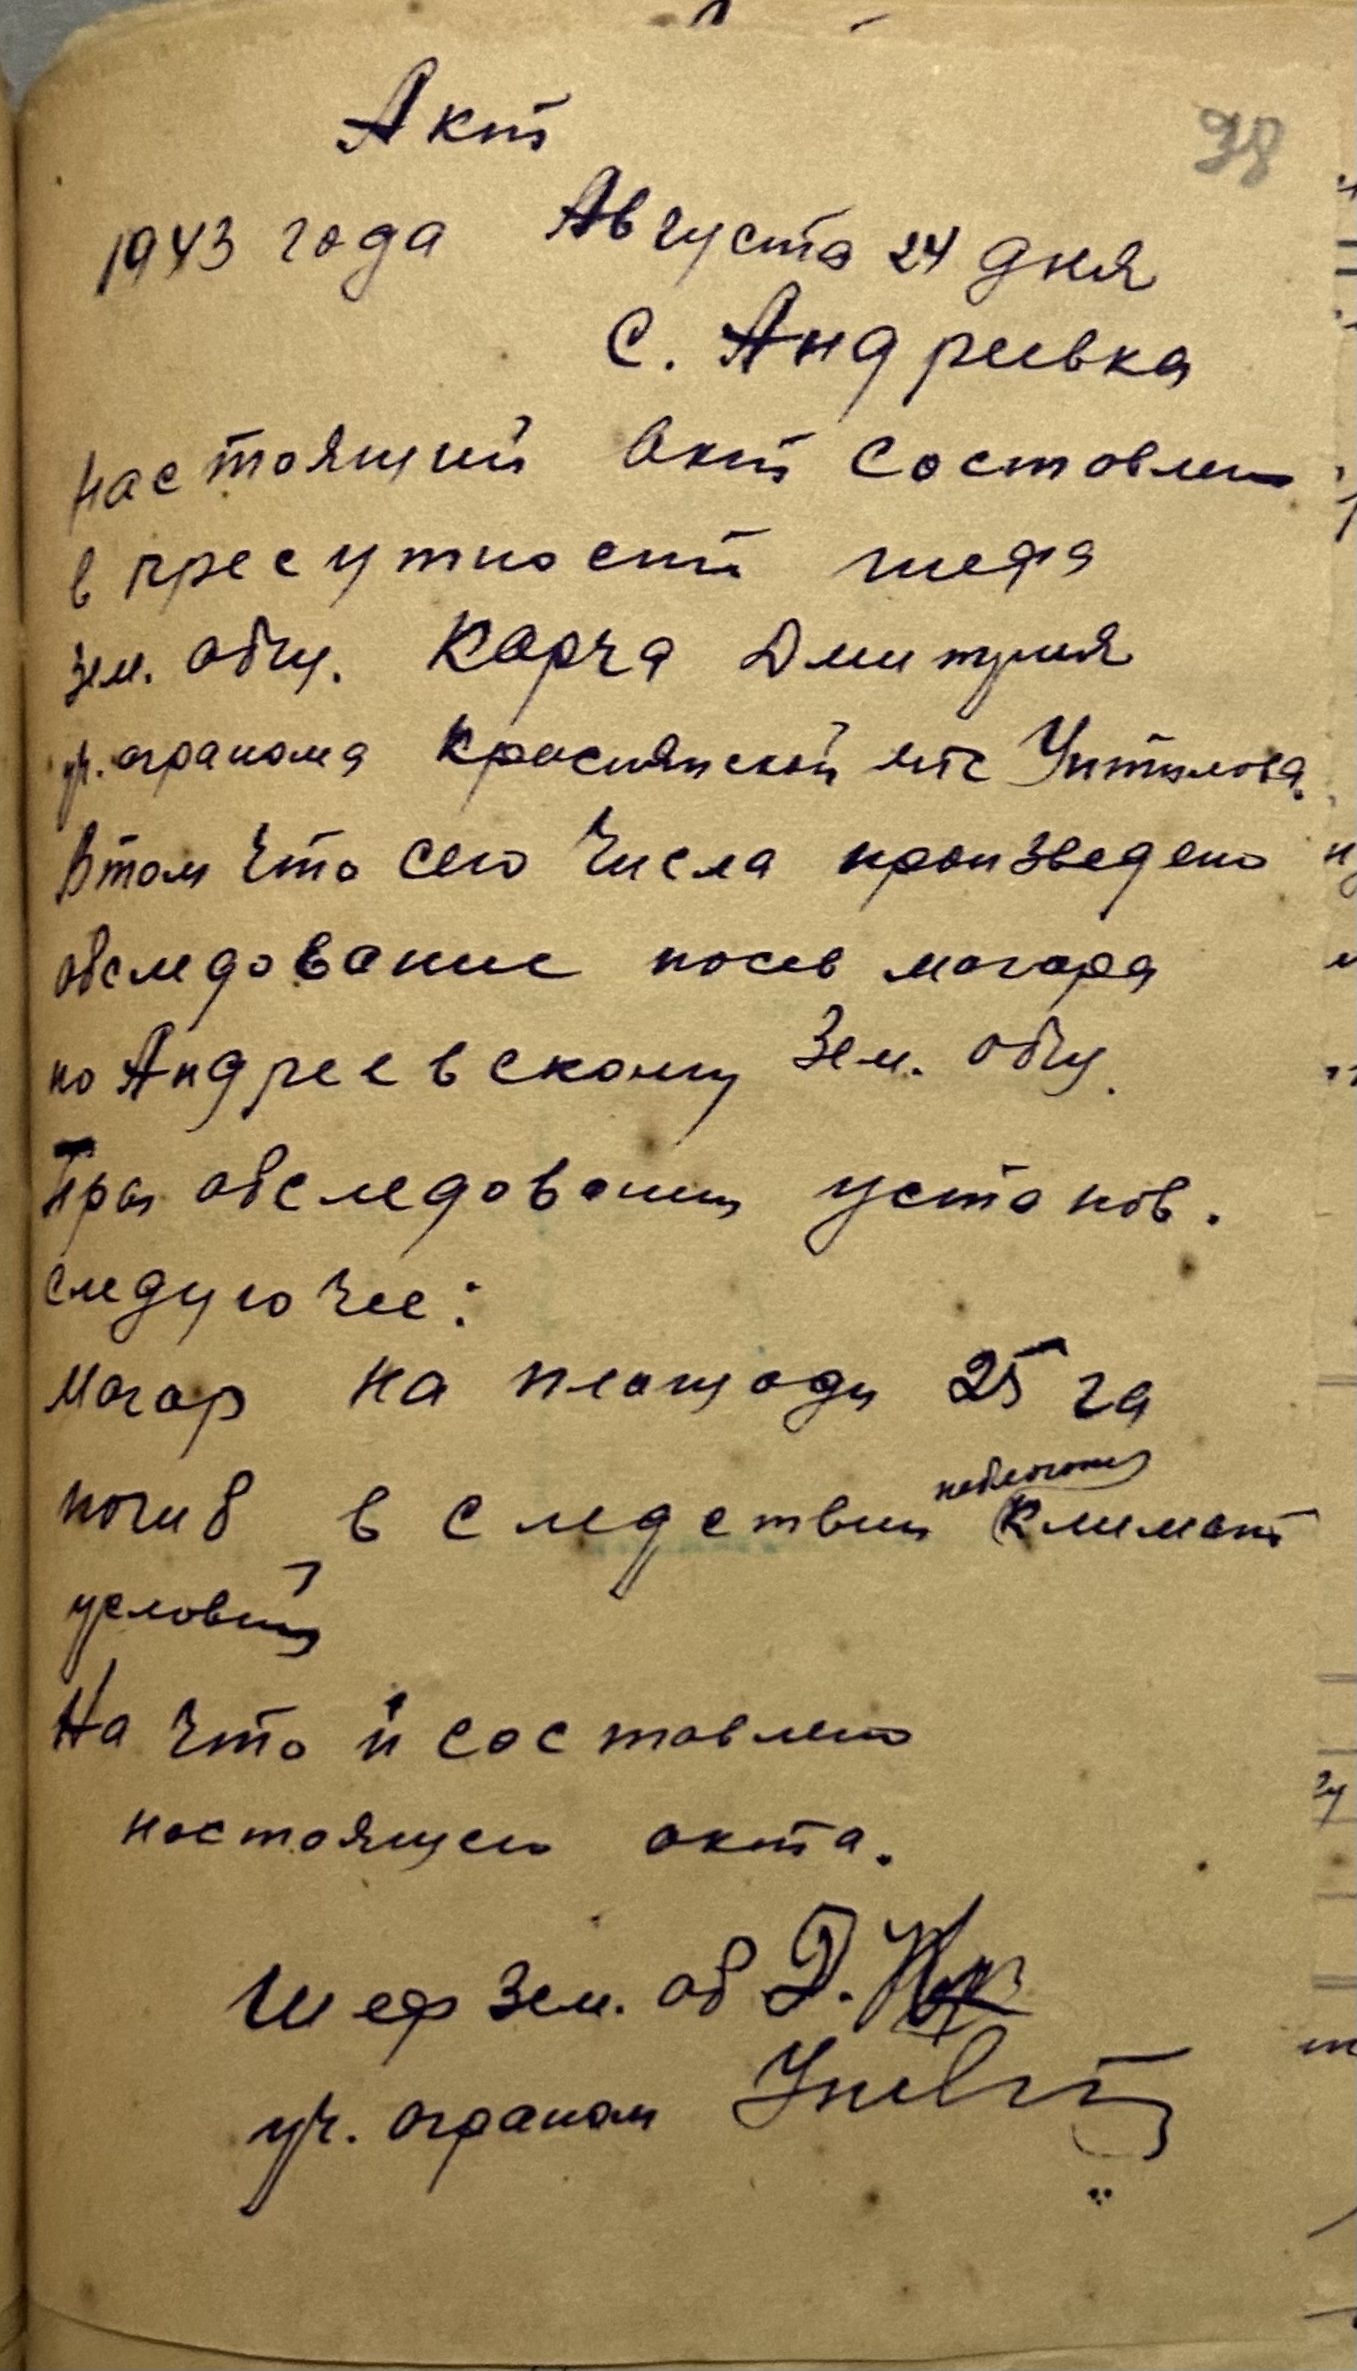 Акт
38
1943 года Августа 24 дня
с. Андреевка
настоящий акт составлен
в пресутности шефа
зем. общ. Карча Дмитрия
уч. агранома МТС
Втом что сего числа произведено
обследование посев могара
по Андреевскому Зем. общ.
При обследовании установ.
следуючее:
могар на площади 25 га
погиб в следствии Климат
условий
На что и составлено
настоящего акта.
Шеф зем. об Д.
уч. аграном